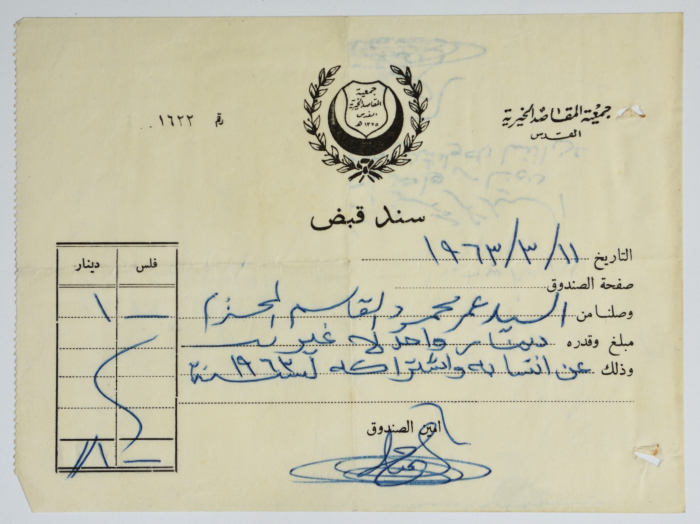 جمعية المقاصد الخيرية
القدس
جمعية
المقاصد الخيرية
القدس
١٣٧٥ هـ
رقم ١٦٢٢
سند قبض
التاريخ ١٩٦٣/٣/١١
صفحة الصندوق
وصلنا من السيد عمر محمود القاسم المحترم
مبلغ وقدره دينار واحد لا غير
وذلك عن انتسابه واشتراكه لسنة ١٩٦٣
فلس دينار
— ١
— ١
امين الصندوق